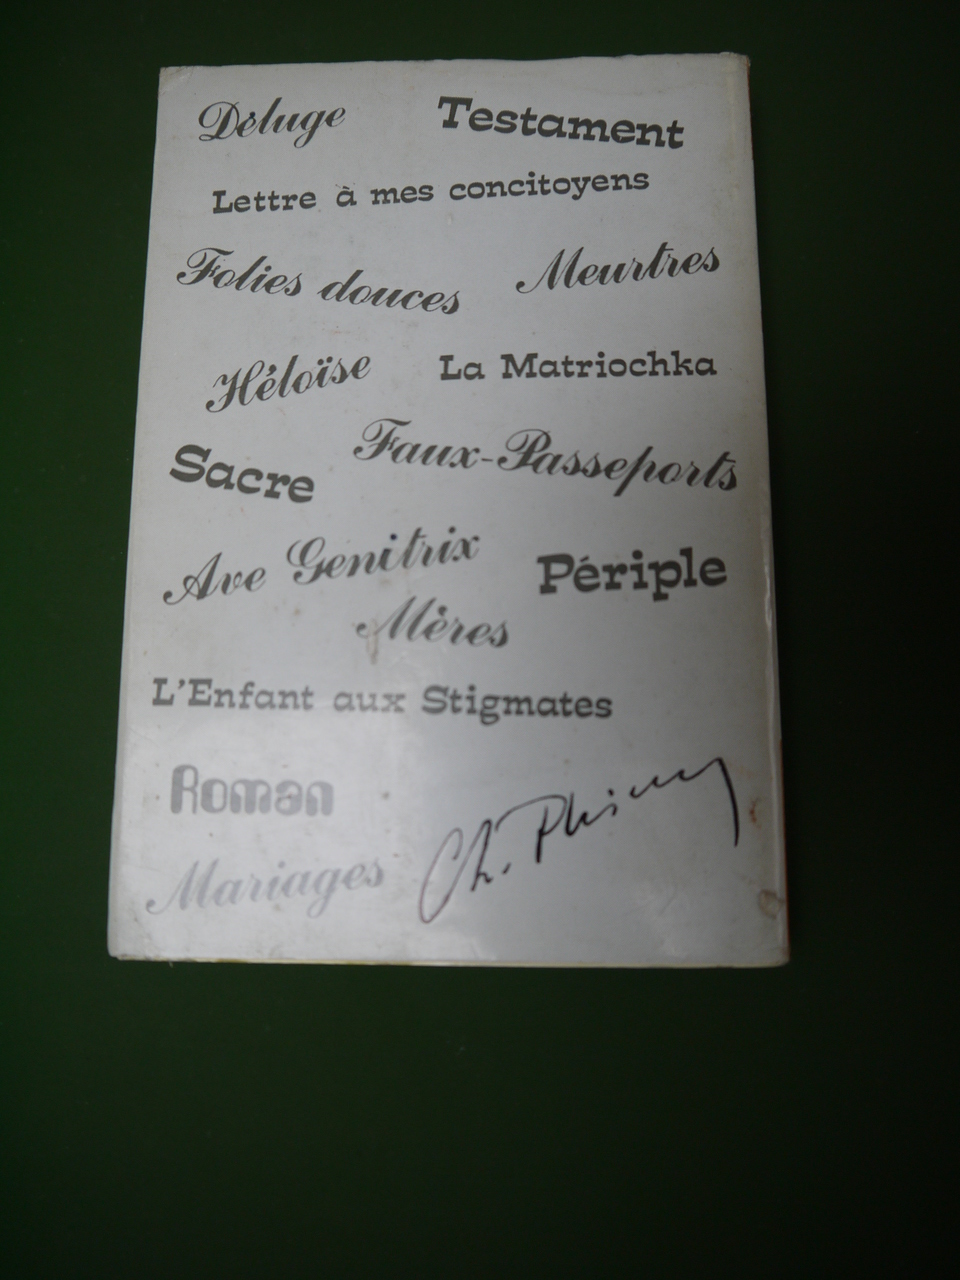 Déluge Testament
Lettre à mes concitoyens
Folies douces Meurtres
Héloïse La Matriochka
Sacre Faux-Passeports
Ave Genitrix Périple
Mères
L'Enfant aux Stigmates
Roman
Mariages Ch. Plisnier